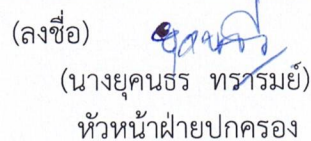 (ลงชื่อ)
(นางยุคนธร ทรารมย์)
หัวหน้าฝ่ายปกครอง